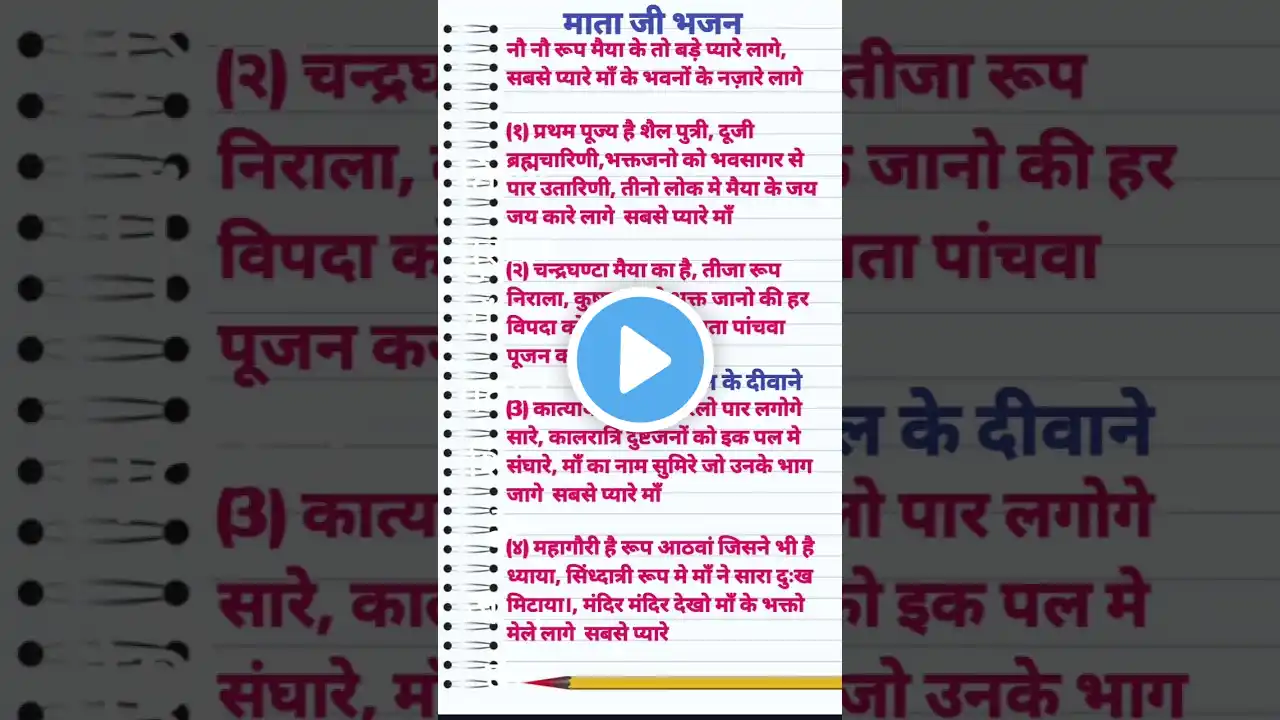 माता जी भजन
नौ नौ रूप मैया के तो बड़े प्यारे लागे,
सबसे प्यारे माँ के भवनों के नज़ारे लागे
(१) प्रथम पूज्य है शैल पुत्री, दूजी
ब्रह्मचारिणी,भक्तजनो को भवसागर से
पार उतारिणी, तीनो लोक मे मैया के जय
जय कारे लागे सबसे प्यारे माँ
(२) चन्द्रघण्टा मैया का है, तीजा रूप
निराला, जानो की हर
विपदा पांचवा
पूजन
के दीवाने
(3) पार लगोगे
सारे, कालरात्रि दुष्टजनों को इक पल मे
संघारे, माँ का नाम सुमिरे जो उनके भाग
जागे सबसे प्यारे माँ
(४) महागौरी है रूप आठवां जिसने भी है
ध्याया, सिंध्दात्री रूप मे माँ ने सारा दुःख
मिटाया।, मंदिर मंदिर देखो माँ के भक्तो
मेले लागे सबसे प्यारे